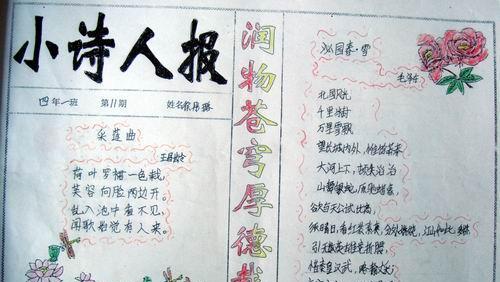 小诗人报
四年一班 第11期 姓名徐
采莲曲
王昌龄
荷叶罗裙一色裁,
芙容向脸两边开。
乱入池中看不见,
闻歌始觉有人来。
润物苍穹厚德载
沁园春·雪
毛泽东
北国风光
千里冰封
万里雪飘
望长城内外,惟馀莽莽
大河上下,顿失滔滔
山舞银蛇,原驰蜡象,
欲与天公试比高,
须晴日,看红装素裹,分外妖娆,江山如此多娇
引无数英雄竞折腰,
惜秦皇汉武,略输文采